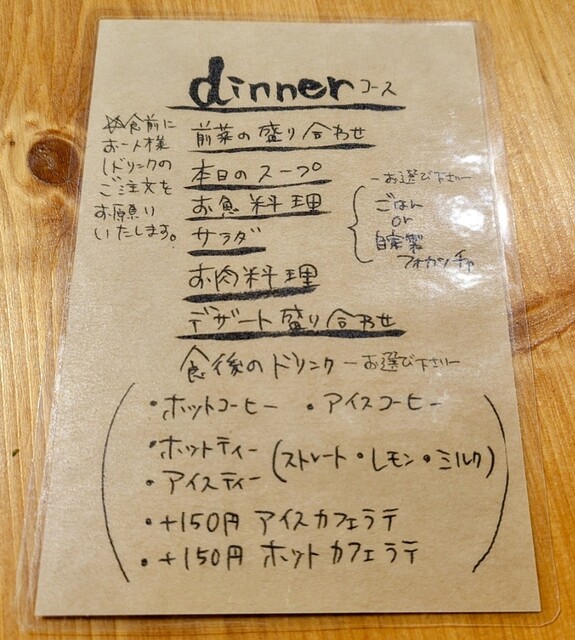 dinnerコース
※食前に
お一人様
1ドリンクの
ご注文を
お願い
いたします。
前菜の盛り合わせ
本日のスープ
お魚料理
サラダ
お肉料理
デザート盛り合わせ
－お選び下さい－
ごはん
or
自家製
フォカッチャ
食後のドリンク －お選び下さい－
・ホットコーヒー ・アイスコーヒー
・ホットティー
・アイスティー
(ストレート・レモン・ミルク)
・+150円 アイスカフェラテ
・+150円 ホットカフェラテ